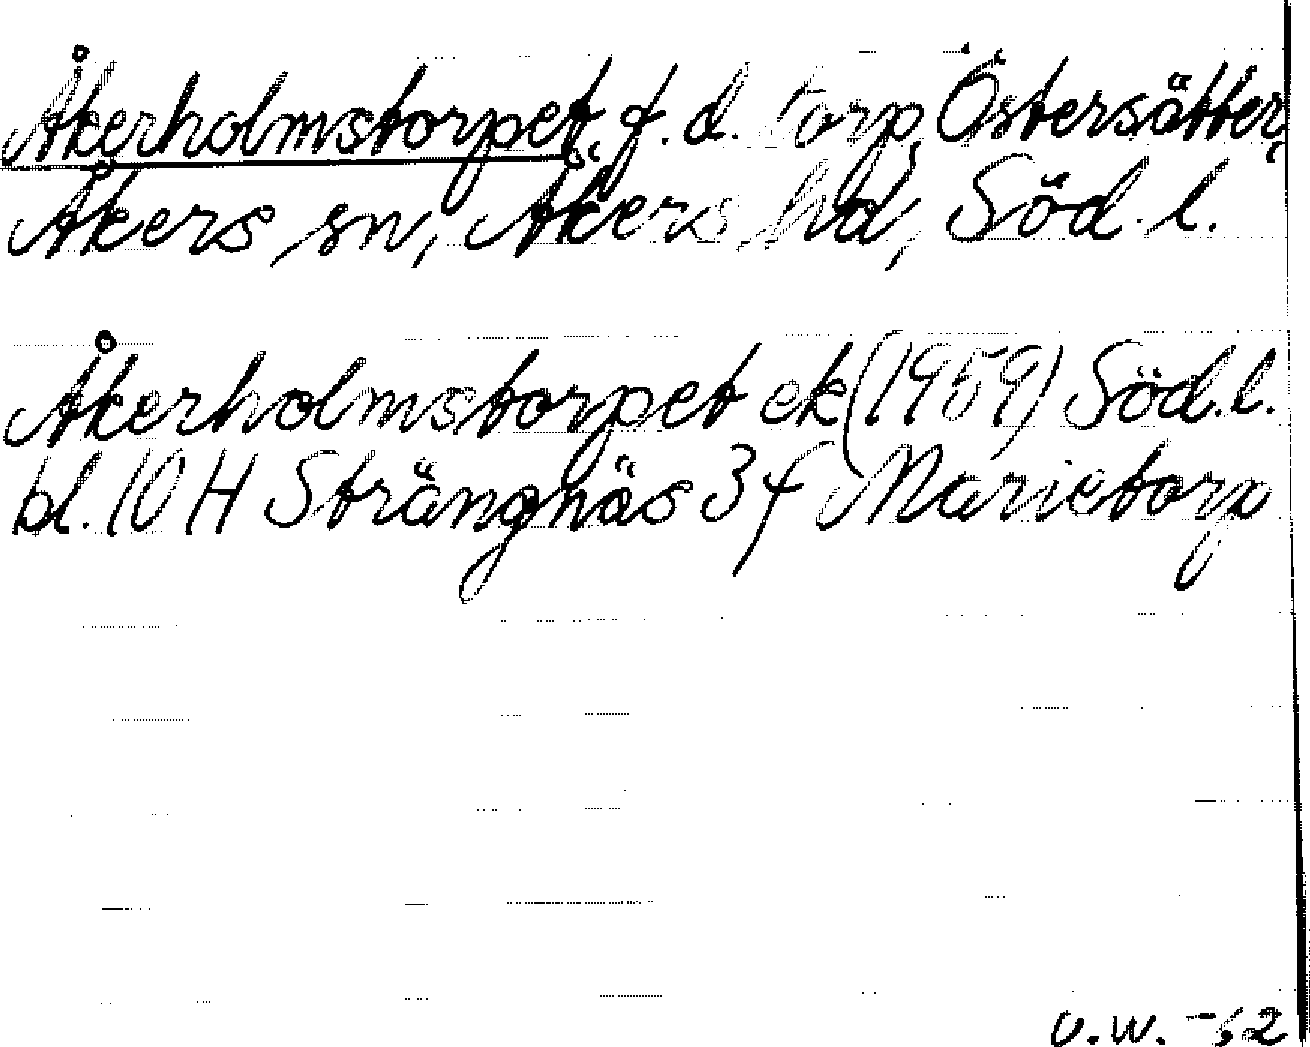 Åkerholmstorpet, f.d. torp, Östersätter,
Åkers sn, Åkers hd, Söd.l.
Åkerholmstorpet ek (1959) Söd.l.
bl. 10 H Strängnäs 3 f Marietorp